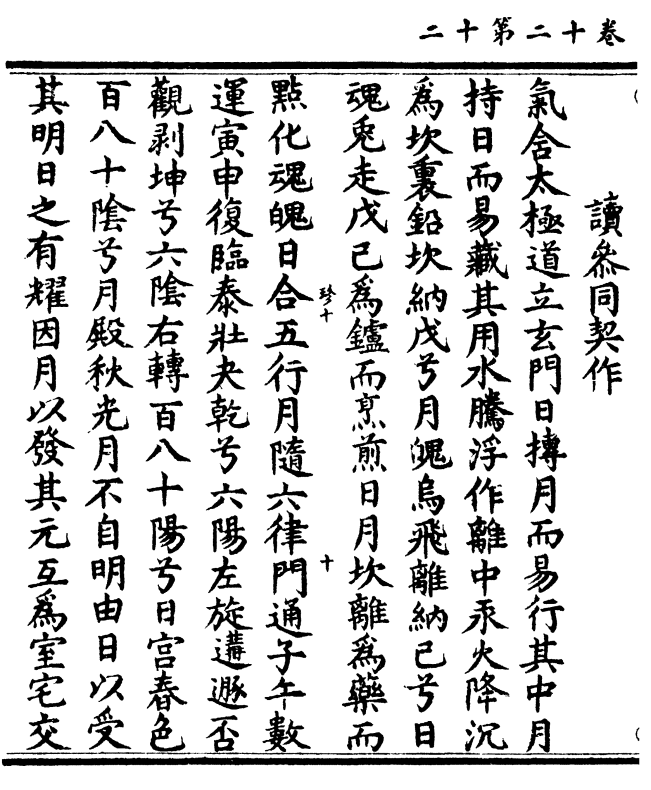 卷十二第十二
讀叅同契作
氣含太極道立玄門日摶月而易行其中月
持日而易藏其用水騰浮作離中汞火降沉
爲坎裏鉛坎納戊兮月魄烏飛離納己兮日
魂兎走戊己爲鑪而烹煎日月坎離爲藥而
點化魂魄日合五行月隨六律門通子午數
珍十
十
運寅申復臨泰壯夬乾兮六陽左旋遘遯否
觀剥坤兮六陰右轉百八十陽兮日宫春色
百八十陰兮月殿秋光月不自明由日以受
其明日之有耀因月以發其元互爲室宅交